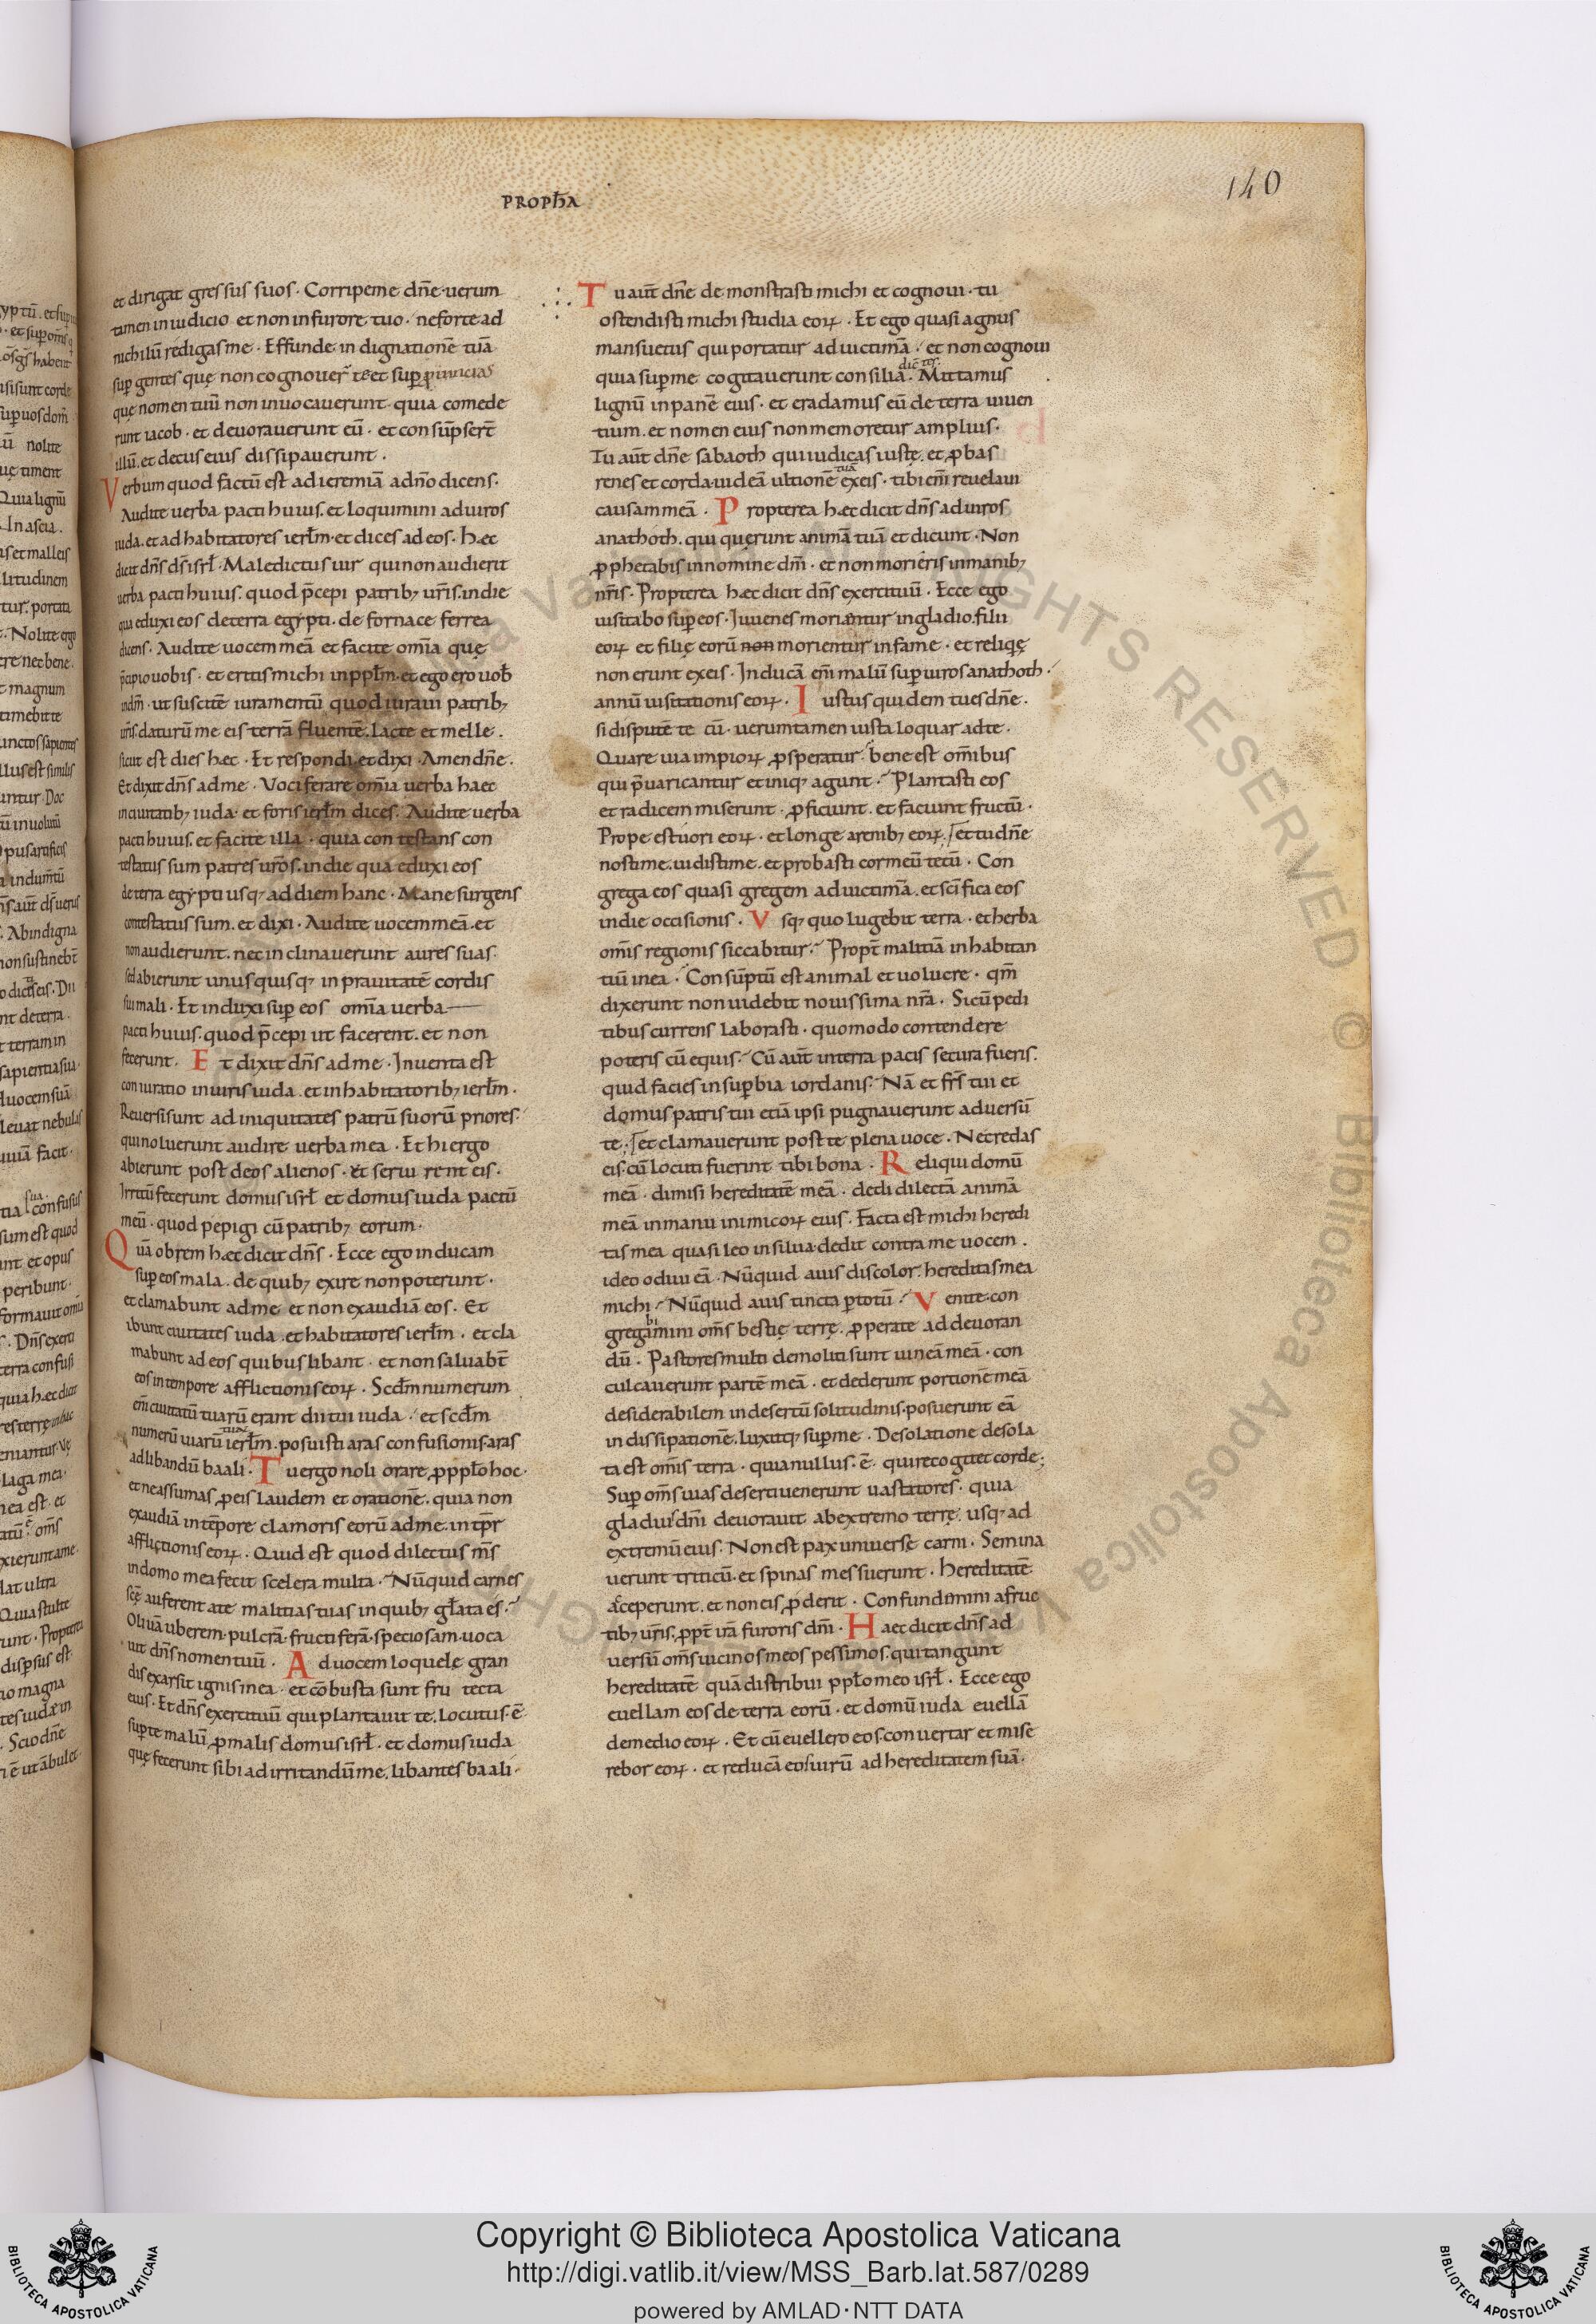 PROPHA
140
et dirigat gressus suos. Corripe me dn̄e. uerum
tamen in iudicio et non in furore tuo. ne forte ad
nichilū redigas me. Effunde indignationē tuā
suꝑ gentes quę non cognouer̄ te et suꝑ ꝓuincias
quę nomen tuū non inuocauerunt. quia comede
runt iacob. et deuorauerunt eū. et consūpsert̄
illū. et decus eius dissipauerunt.
Verbum quod factū est ad ieremiā a dn̄o dicens.
Audite uerba pacti huius. et loquimini ad uiros
iuda. et ad habitatores ierłm. et dices ad eos. Hæc
dicit dn̄s ds̄ isrł. Maledictus uir qui non audierit
uerba pacti huius. quod p̄cepi patribꝫ ur̄is. in die
qua eduxi eos de terra egypti. de fornace ferrea
dicens. Audite uocem meā et facite om̄ia quę
p̄cipio uobis. et eritis michi in ppłm. et ego ero uob̄
in dm̄. ut suscitē iuramentū quod iuraui patribꝫ
ur̄is. daturū me eis terrā fluentē. lacte et melle.
sicut est dies hæc. Et respondi et dixi. Amen dn̄e.
Et dixit dn̄s ad me. Vociferare om̄ia uerba haec
in ciuitatibꝫ iuda. et foris ierłm dices. Audite uerba
pacti huius. et facite illa. quia contestans con
testatus sum patres ur̄os. in die qua eduxi eos
de terra egypti usqꝫ ad diem hanc. Mane surgens
contestatus sum. et dixi. Audite uocem meā. et
non audierunt. nec inclinauerunt aures suas.
sed abierunt unusquisqꝫ in prauitatē cordis
sui mali. Et induxi suꝑ eos om̄ia uerba
pacti huius. quod p̄cepi ut facerent. et non
fecerunt. Et dixit dn̄s ad me. Inuenta est
coniuratio in uiris iuda. et in habitatoribꝫ ierłm.
Reuersi sunt ad iniquitates patrū suorū priores.
qui noluerunt audire uerba mea. Et hi ergo
abierunt post deos alienos. et seruirent eis.
Irritū fecerunt domus isrł et domus iuda pactū
meū. quod pepigi cū patribꝫ eorum.
Quā obrem hæc dicit dn̄s. Ecce ego inducam
suꝑ eos mala. de quibꝫ exire non poterunt.
et clamabunt ad me et non exaudiā eos. Et
ibunt ciuitates iuda. et habitatores ierłm. et cla
mabunt ad eos quibus libant. et non saluabt̄
eos in tempore afflictionis eoꝝ. Scdm̄ numerum
em̄ ciuitatū tuarū erant dii tui iuda. et scdm̄
numerū uiarū tuaꝝ ierłm. posuisti aras confusionis. aras
ad libandū baali. Tu ergo noli orare ꝓ ppło hoc.
et ne assumas ꝓ eis laudem et orationē. quia non
exaudiā in tēpore clamoris eorū ad me. in tp̄r
afflictionis eoꝝ. Quid est quod dilectus m̄s
in domo mea fecit scelera multa. Nūquid carnes
sc̄ę auferent a te malitias tuas in quibꝫ głata es.
Oliuā uberem. pulcrā. fructiferā. speciosam. uoca
uit dn̄s nomen tuū. Ad uocem loquele gran
dis exarsit ignis in ea. et cōbusta sunt fru tecta
eius. Et dn̄s exercituū qui plantauit te. locutus. ē
suꝑ te malū. ꝓ malis domus isrł. et domus iuda
quę fecerunt sibi ad irritandū me. libantes baali.
Tu aut̄ dn̄e demonstrasti michi et cognoui. tu
ostendisti michi studia eoꝝ. Et ego quasi agnus
mansuetus qui portatur ad uictimā. et non cognoui
quia suꝑ me cogitauerunt consilia. dic̄tes. Mittamus
lignū in panē eius. et eradamus eū de terra uiuen
tium. et nomen eius non memoretur amplius.
Tu aut̄ dn̄e sabaoth qui iudicas iuste. et ꝓbas
renes et corda. uideā ultionē tuā ex eis. tibi em̄ reuelaui
causam meā. Propterea hæc dicit dn̄s ad uiros
anathoth. qui querunt animā tuā et dicunt. Non
ꝓphetabis in nomine dm̄. et non morieris in manibꝫ
nr̄is. Propterea hæc dicit dn̄s exercituū. Ecce ego
uisitabo suꝑ eos. Iuuenes morientur in gladio. filii
eoꝝ et filię eorū non morientur in fame. et reliqię
non erunt ex eis. Inducā em̄ malū suꝑ uiros anathoth.
annū uisitationis eoꝝ. Iustus quidem tu es dn̄e.
si disputē te cū. uerumtamen iusta loquar ad te.
Quare uia impioꝝ ꝓsperatur. bene est om̄ibus
qui p̄uaricantur et iniqꝫ agunt. Plantasti eos
et radicem miserunt. ꝓficiunt. et faciunt fructū.
Prope es tu ori eoꝝ. et longe a renibꝫ eoꝝ. et tu dn̄e
nosti me. uidisti me. et probasti cor meū tecū. Con
grega eos quasi gregem ad uictimā. et sc̄ifica eos
in die occisionis. Vsqꝫ quo lugebit terra. et herba
om̄is regionis siccabitur. Propt̄ malitiā inhabitan
tiū in ea. Consūptū est animal et uolucre. qm̄
dixerunt non uidebit nouissima nr̄a. Si cū pedi
tibus currens laborasti. quomodo contendere
poteris cū equis. Cū aut̄ in terra pacis secura fueris.
quid facies in suꝑbia iordanis. Nā et fr̄s tui et
domus patris tui etiā ipsi pugnauerunt aduersū
te. et clamauerunt post te plena uoce. Ne credas
eis. cū locuti fuerint tibi bona. Reliqui domū
meā. dimisi hereditatē meā. dedi dilectā animā
meā in manu inimicoꝝ eius. Facta est michi heredi
tas mea quasi leo in silua. dedit contra me uocem.
ideo odiui eā. Nūquid auis discolor. hereditas mea
michi. Nūquid auis tincta ꝑ totū. Venite. con
gregamini bi om̄s bestię terrę. ꝓperate ad deuoran
dū. Pastores multi demoliti sunt uineā meā. con
culcauerunt partē meā. et dederunt portionē meā
desiderabilem in desertū solitudinis. posuerunt eā
in dissipationē. luxitqꝫ suꝑ me. Desolatione desola
ta est om̄is terra. quia nullus. ē. qui recogitet corde;
Suꝑ om̄s uias deserti uenerunt uastatores. quia
gladius dm̄ deuorauit ab extremo terrę. usqꝫ ad
extremū eius. Non est pax uniuerse carni. Semina
uerunt triticū. et spinas messuerunt. Hereditatē
acceperunt. et non eis ꝓderit. Confundimini a fruc
tibꝫ ur̄is. ꝓpt̄ irā furoris dm̄. Haec dicit dn̄s ad
uersū om̄s uicinos meos pessimos. qui tangunt
hereditatē quā distribui ppło meo isrł. Ecce ego
euellam eos de terra eorū. et domū iuda euellā
de medio eoꝝ. Et cū euellero eos. conuertar et mise
rebor eoꝝ. et reducā eos uirū ad hereditatem suā.
Copyright © Biblioteca Apostolica Vaticana
http://digi.vatlib.it/view/MSS_Barb.lat.587/0289
powered by AMLAD·NTT DATA
BIBLIOTECA APOSTOLICA VATICANA
BIBLIOTECA APOSTOLICA VATICANA